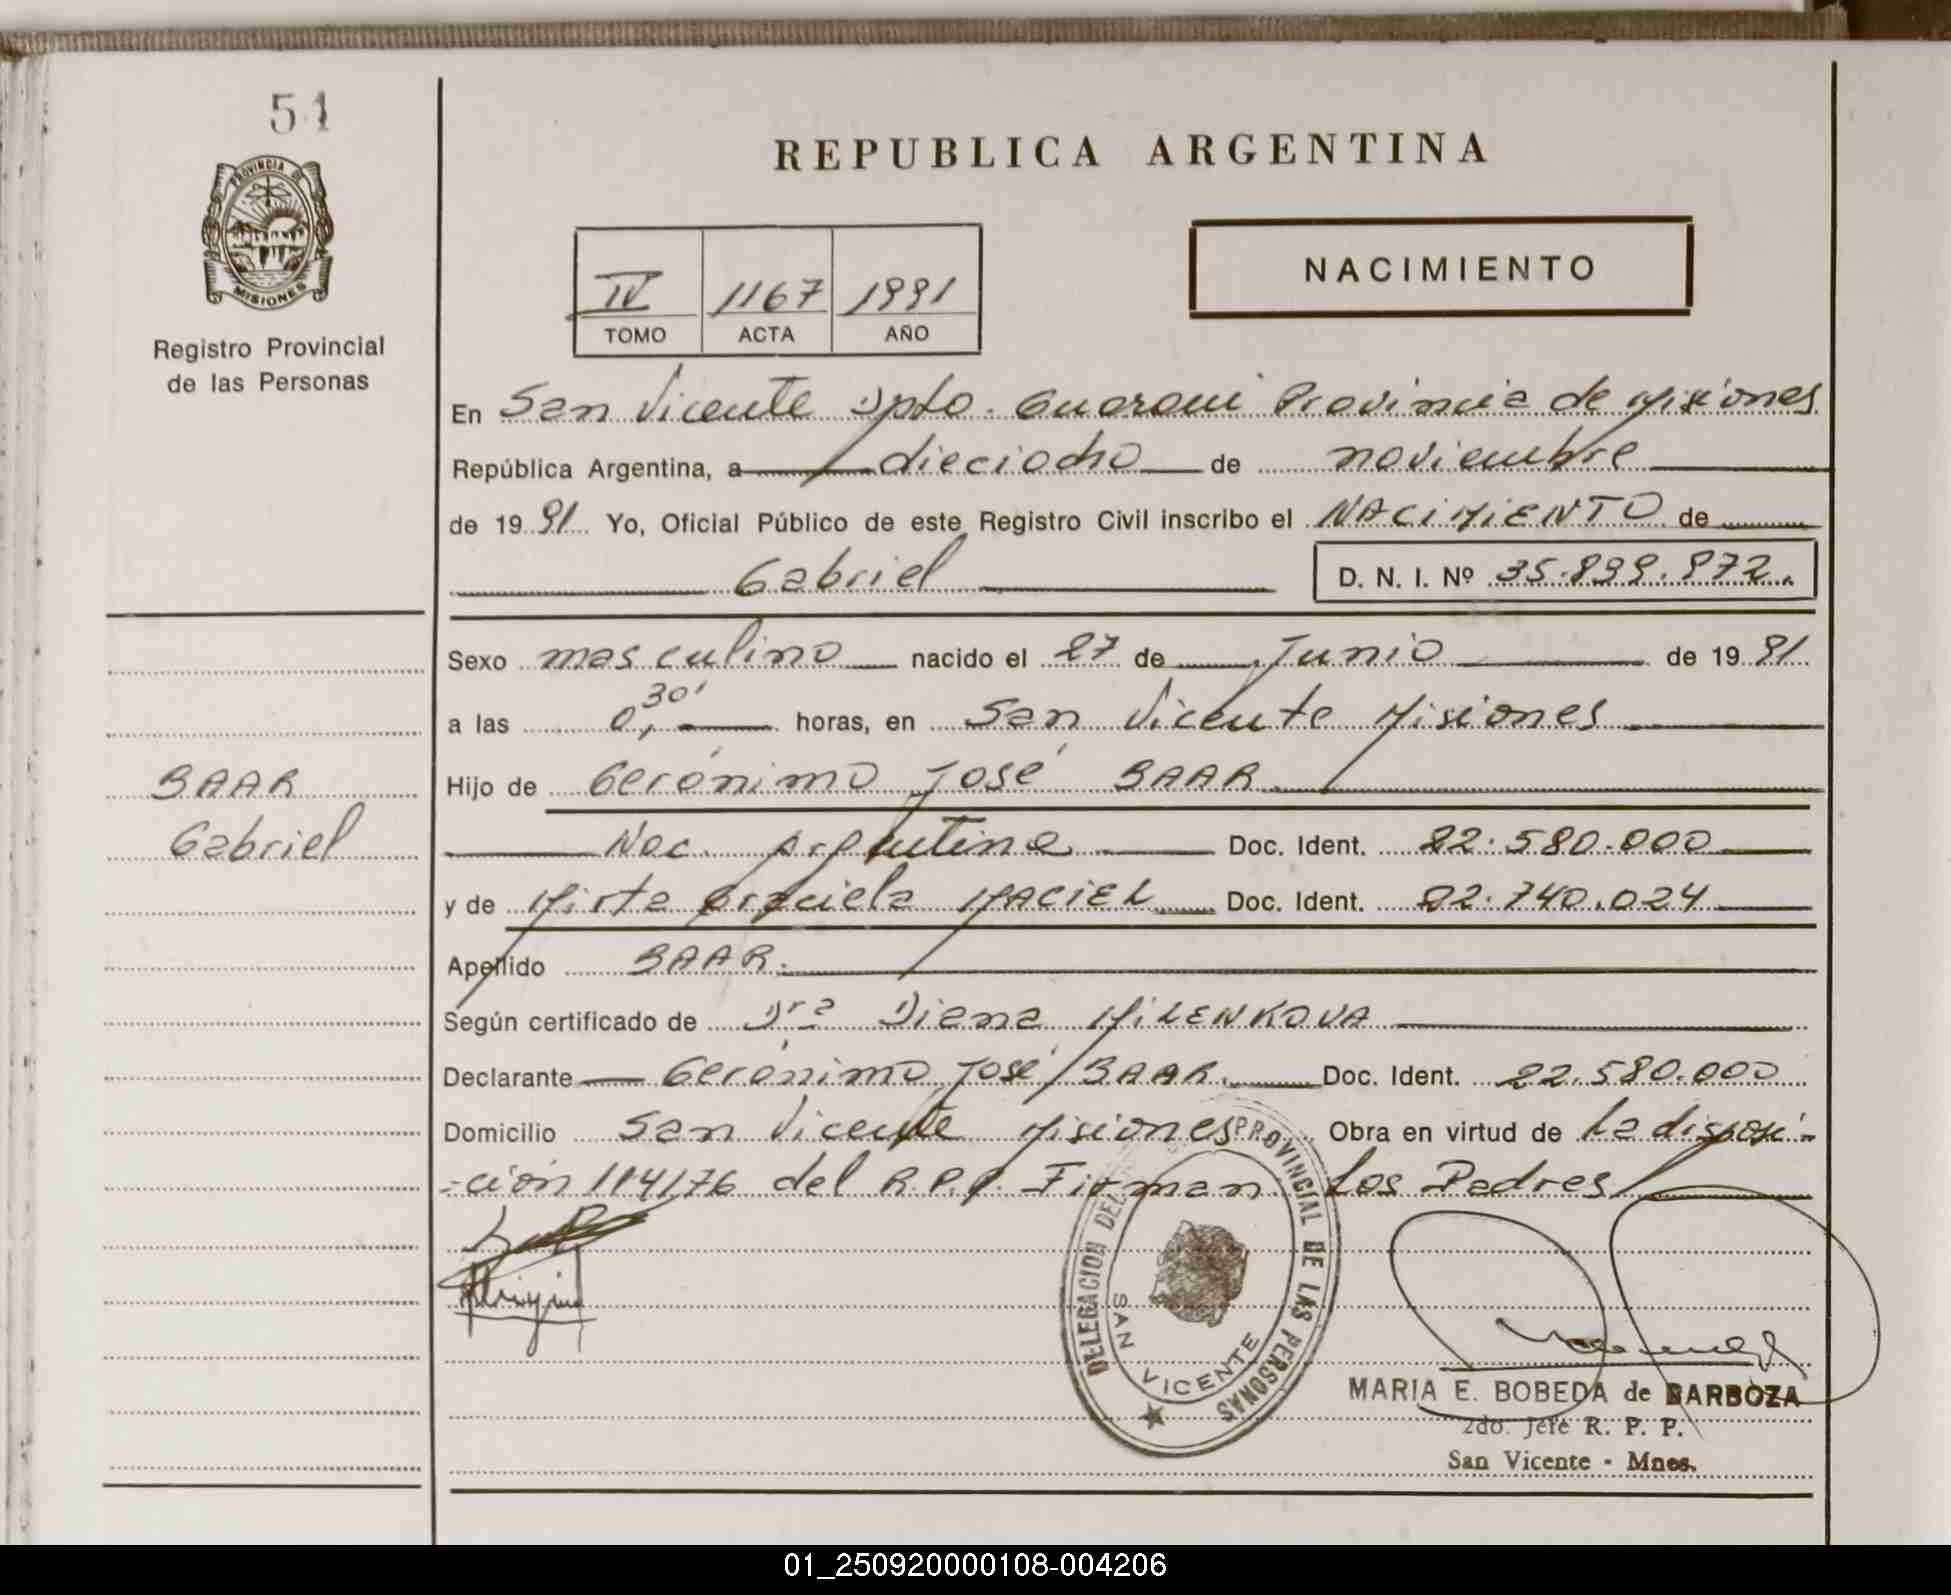 51
PROVINCIA DE
MISIONES
Registro Provincial
de las Personas
REPUBLICA ARGENTINA
IV 1167 1991
TOMO ACTA AÑO
NACIMIENTO
En San Vicente Dpto. Guarani Provincia de Misiones
República Argentina, a dieciocho de noviembre
de 19 91 Yo, Oficial Público de este Registro Civil inscribo el NACIMIENTO de
Gabriel D. N. I. Nº 35.899.972.
Sexo masculino nacido el 27 de Junio de 19 91
a las 0,30' horas, en San Vicente Misiones
Hijo de Gerónimo José BAAR
Nac. Argentina Doc. Ident. 22.580.000
y de Mirta Graciela MACIEL Doc. Ident. 22.740.024
Apellido BAAR.
Según certificado de Dra Diana MILENKOVA
Declarante Gerónimo José BAAR. Doc. Ident. 22.580.000
Domicilio San Vicente Misiones Obra en virtud de La disposi-
-ción 114/76 del R.P.P. Firman Los Padres
BAAR
Gabriel
DELEGACION DEL PROVINCIAL DE LAS PERSONAS
SAN VICENTE
MARIA E. BOBEDA de BARBOZA
2do. Jefe R. P. P.
San Vicente - Mnes.
01_250920000108-004206